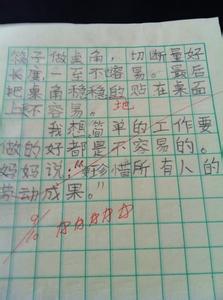 筷子做桌角,切断量好
长度,一至不容易。最后
把桌角稳稳的贴在桌面
地
上不容易。
我想简单的工作要
做的好都是不容易的。
妈妈说:“珍惜所有人的
劳动成果。”
9/10